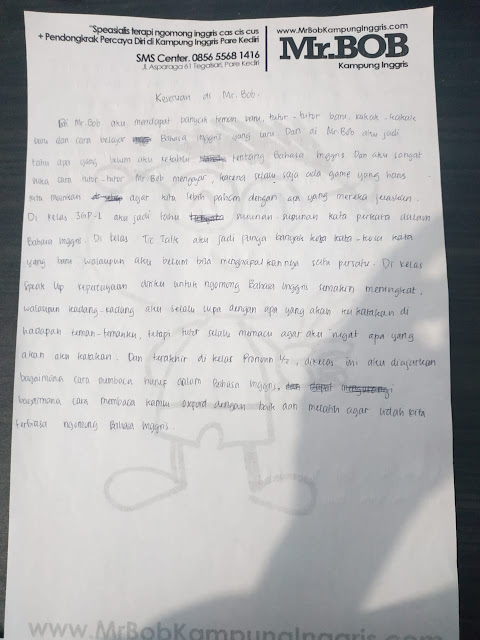 "Speasialis terapi ngomong inggris cas cis cus
+ Pendongkrak Percaya Diri di Kampung Inggris Pare Kediri
SMS Center. 0856 5568 1416
Jl. Asparaga 61 Tegalsari, Pare Kediri
www.MrBobKampungInggris.com
Mr.BOB
Kampung Inggris
Keseruan di Mr. Bob.
Di Mr. Bob aku mendapat banyak teman baru, tutor-tutor baru, kakak-kakak
baru dan cara belajar Bahasa Inggris yang baru. Dan di Mr Bob aku jadi
tahu apa yang belum aku ketahui tentang Bahasa Inggris. Dan aku sangat
suka cara tutor-tutor Mr Bob mengajar, karena selalu saja ada game yang harus
kita mainkan agar kita lebih paham dengan apa yang mereka jelaskan.
Di kelas aku jadi tahu susunan-susunan kata perkata dalam
Bahasa Inggris. Di kelas Tic Talk aku jadi punya banyak kata-kata
yang baru walaupun aku belum bisa menghapalkannya satu persatu. Di kelas
Speak Up kepercayaan diriku untuk ngomong Bahasa Inggris semakin meningkat,
walaupun kadang-kadang aku selalu lupa dengan apa yang akan ku katakan di
hadapan teman-temanku, tetapi tutor selalu memacu agar aku ingat apa yang
akan aku katakan. Dan terakhir di kelas Pronoun 1/2, dikelas ini aku diajarkan
bagaimana cara membaca huruf dalam Bahasa Inggris,
bagaimana cara membaca kamus oxford dengan baik dan melatih agar lidah kita
terbiasa ngomong Bahasa Inggris.
www.MrBobKampungInggris.com